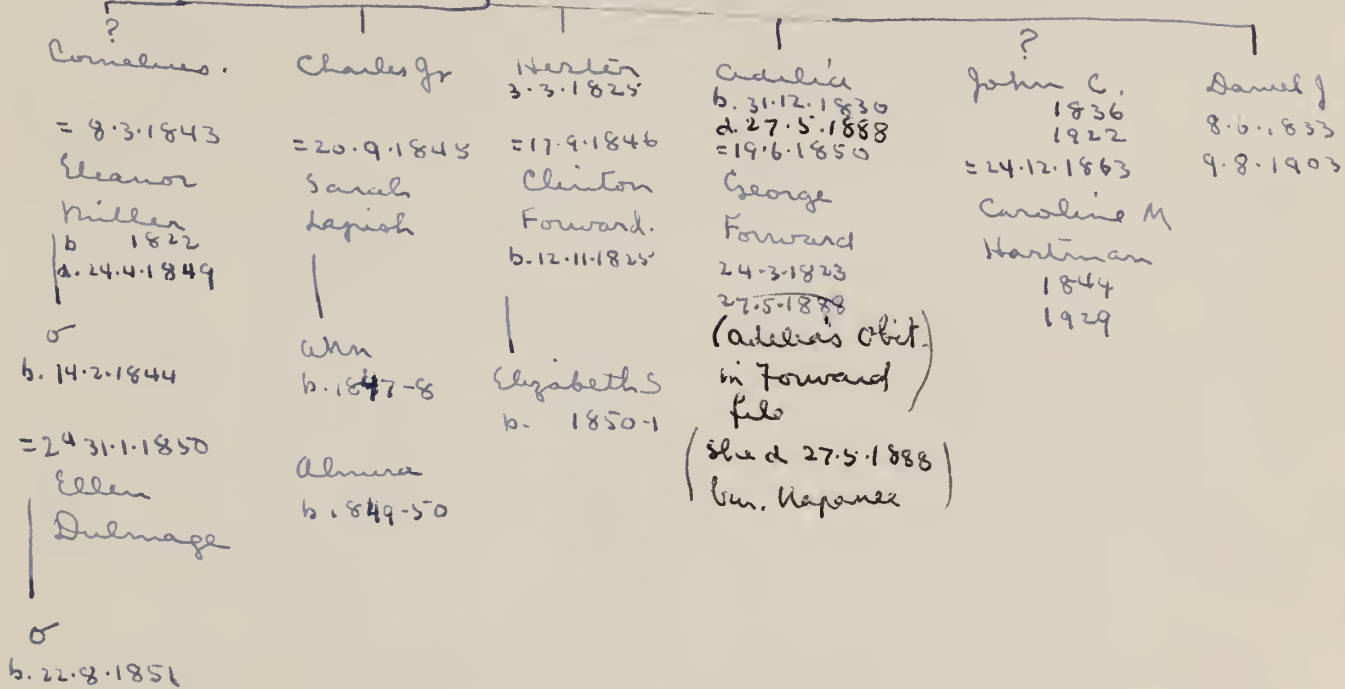 ?
Cornelius.
= 8.3.1843
Eleanor
Miller
b 1822
d. 24.4.1849
b. 14.2.1844
= 2d 31.1.1850
Ellen
Dulmage
b. 22.8.1851
Charles Jr
= 20.9.1845
Sarah
Lapish
Ann
b. 1847-8
Almira
b. 1849-50
Hester
3.3.1825
= 17.9.1846
Clinton
Forward.
b. 12.11.1825
Elizabeth S
b. 1850-1
Adelia
b. 31.12.1830
d. 27.5.1888
= 19.6.1850
George
Forward
24.3.1823
27.5.1888
(Adelia's Obit.
in Forward
file)
(She d 27.5.1888
bur. Napanee)
?
John C.
1836
1922
= 24.12.1863
Caroline M
Hartman
1844
1929
Daniel J
8.6.1833
9.8.1903